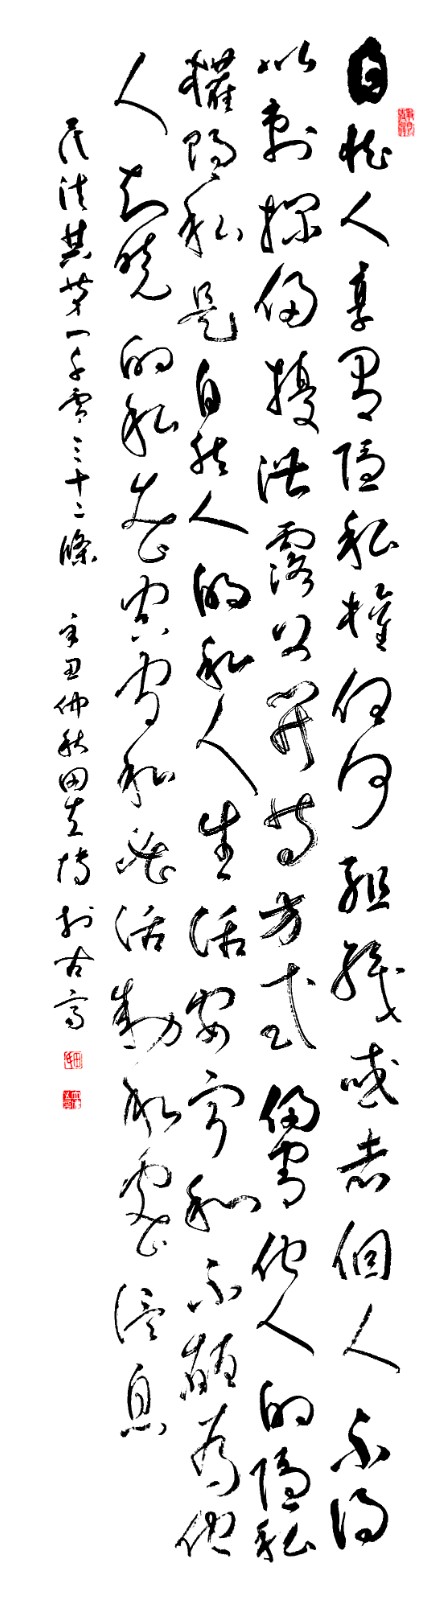 自然人享有隱私權任何組織或者個人不得
以刺探侵擾泄露公開等方式侵害他人的隱私
權隱私是自然人的私人生活安寧和不願為他
人知曉的私密空間私密活動私密信息
民法典第一千零三十二條 辛丑仲秋田